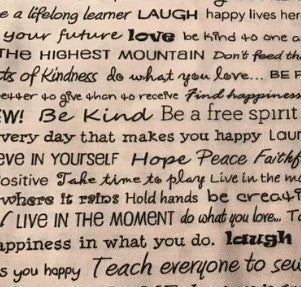 e a lifelong learner LAUGH happy lives her
your future love be kind to one a
THE HIGHEST MOUNTAIN Don't feed th
ts of Kindness do what you love... BE F
better to give than to receive Find happines
EW! Be Kind Be a free spirit
very day that makes you happy LAU
EVE IN YOURSELF Hope Peace Faithf
ositive Take time to play Live in the m
where it rains Hold hands be creati
LIVE IN THE MOMENT do what you love... T
appiness in what you do. laugh
s you happy Teach everyone to sew